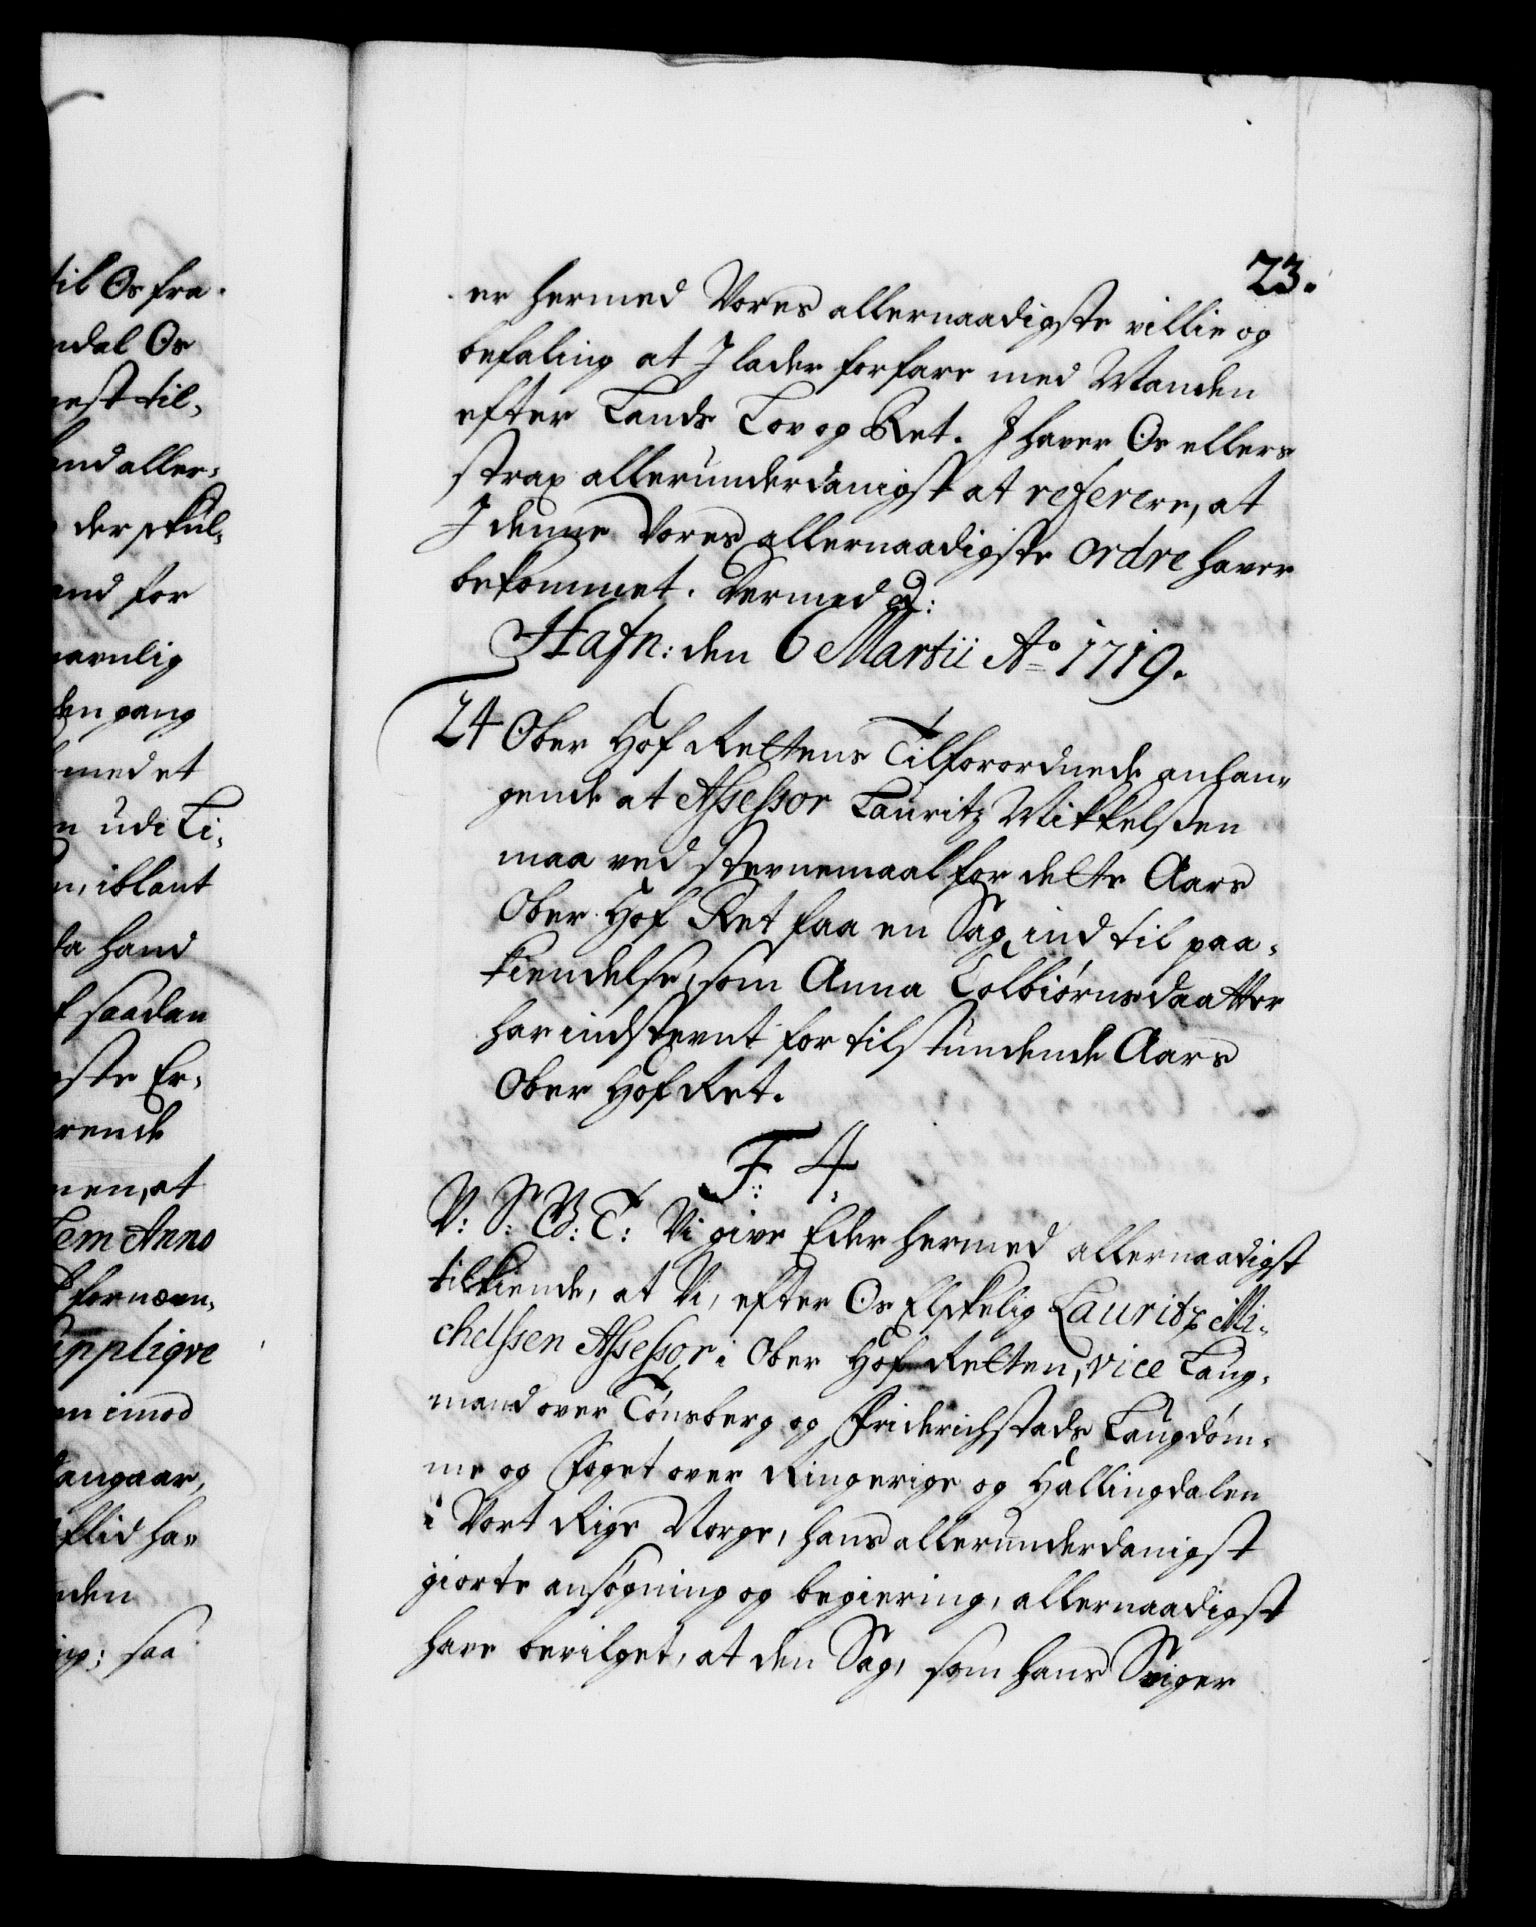 23.
er hermed Vores allernaadigste villie og
befaling at I lader forfare med Manden
efter Lands Lov og Ret. I haver Os ellers
strax allerunderdanigst at referere, at
I denne Vores allernaadigste ordre haver
bekommet. Dermed &:
Hafn: den 6 Martii Ao 1719.
24 Ober Hof Rettens Tilforordnede anhan-
gende at Assessor Lauritz Mikkelsen
maa ved stevnemaal for dette Aars
Ober Hof Ret faa en Sag ind til paa-
kiendelse, som Anna Colbiørnsdaatter
har indstevnt for tilstundende Aars
Ober Hof Ret.
F: 4.
V: S: G: T: Vi give Eder hermed allernaadigst
tilkiende, at Vi, efter Os Elskelig Lauritz Mi-
chelssen Assessor i Ober Hof Retten, vice Laug-
mand over Tønsberg og Friderichstads Laugdøm-
me og Foget over Ringerige og Hallingdalen
i Vort Rige Norge, hans allerunderdanigst
giorte ansøgning og begiering, allernaadigst
have bevilget, at den Sag, som hans Sviger
til Os fra
ndal Os
nest til-
and aller-
der skul-
and for
navnlig
den gang
med et
n udi Li-
n, iblant
da hand
saadan
ste Er-
rende
men, at
tem Anno
fornævn-
uppliqve
en imod
angaar,
flid ha-
nden
saa